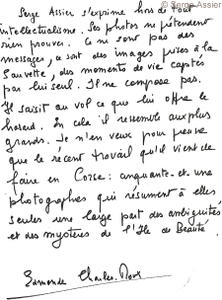 © Serge Assier
Serge Assier s'exprime hors de tout
intellectualisme. Ses photos ne prétendent
rien prouver. Ce ne sont pas des
messages, ce sont des images prises à la
sauvette, des moments de vie captés
par lui seul. Il ne compose pas.
Il saisit au vol ce que lui offre le
hasard. En cela il ressemble aux plus
grands. Je n'en veux pour preuve
que le récent travail qu'il vient de
faire en Corse : cinquante-et-une
photographies qui résument à elles
seules une large part des ambiguïtés
et des mystères de l'Île de Beauté.
Edmonde Charles-Roux